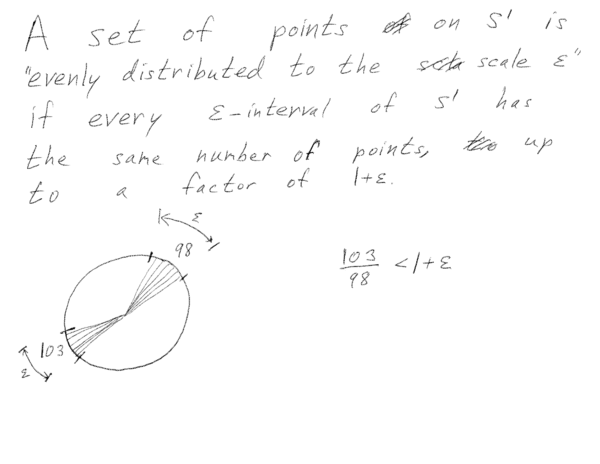 A set of points on S¹ is
"evenly distributed to the scale ε"
if every ε-interval of S¹ has
the same number of points, up
to a factor of 1+ε.
ε
98
103/98 < 1+ε
103
ε